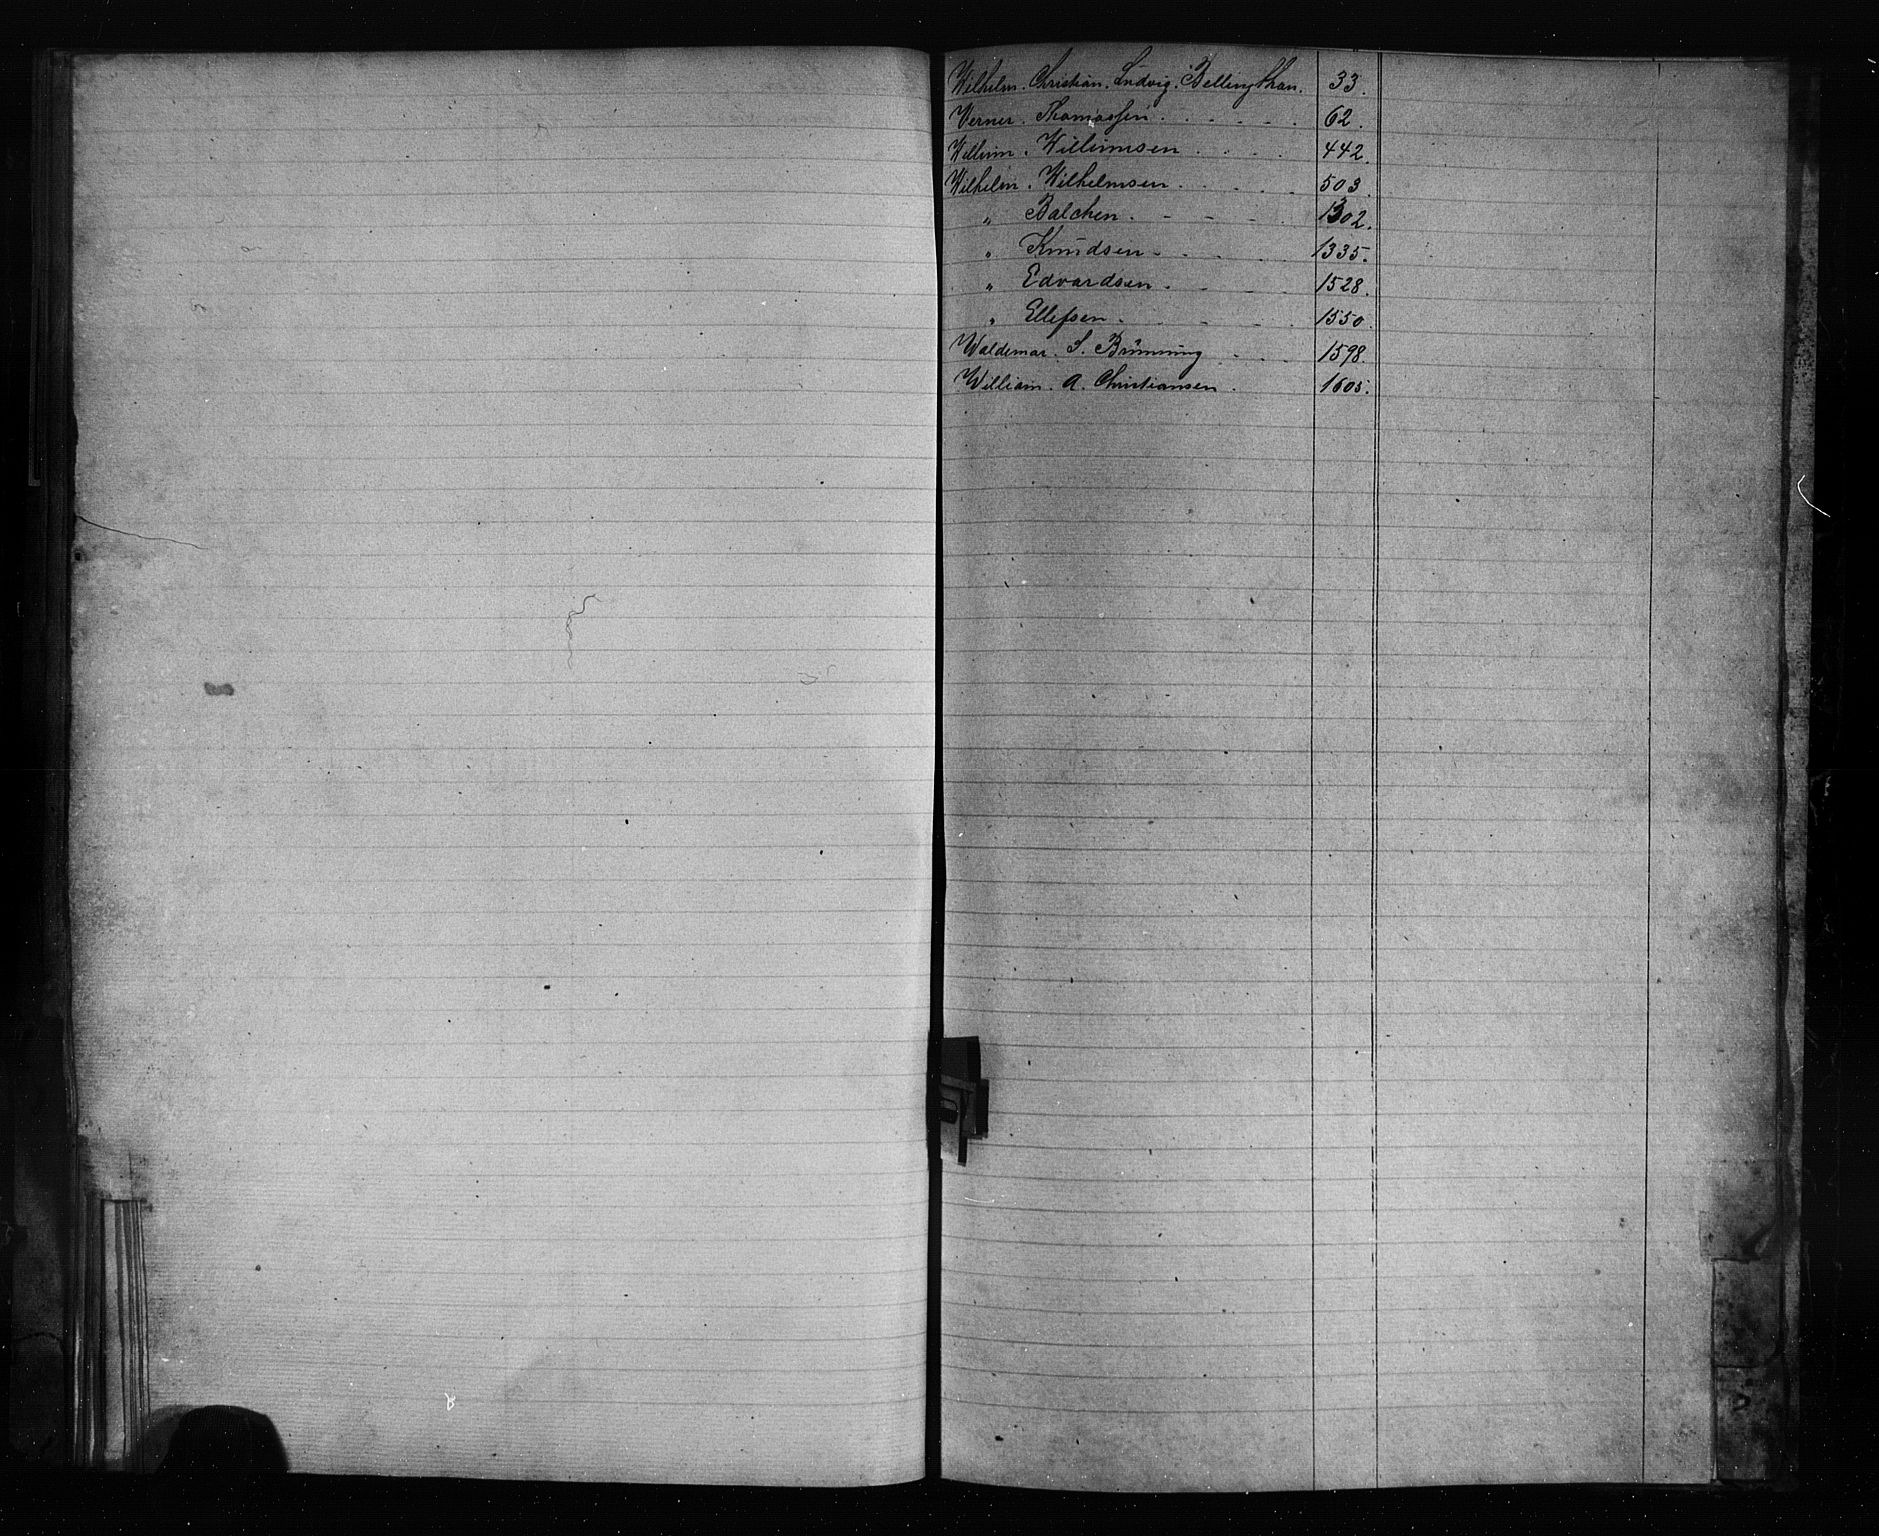 Wilhelm. Christian. Ludvig. Bellingthan. 33.
Verner. Thomassen. 62.
Willum. Willumsen 442.
Wilhelm. Wilhelmsen. 503.
" Balchen. 1302.
" Knudsen. 1335.
" Edvardsen. 1528.
" Ellefsen. 1550.
Waldemar. S. Brünning 1598.
William. A. Christiansen. 1605.